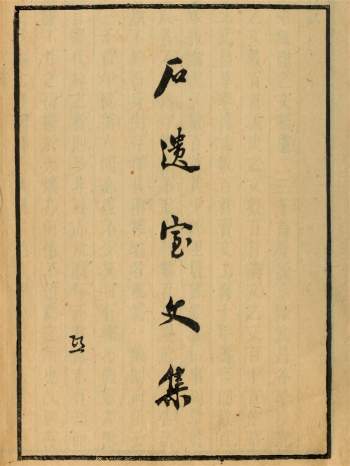 石遺室文集